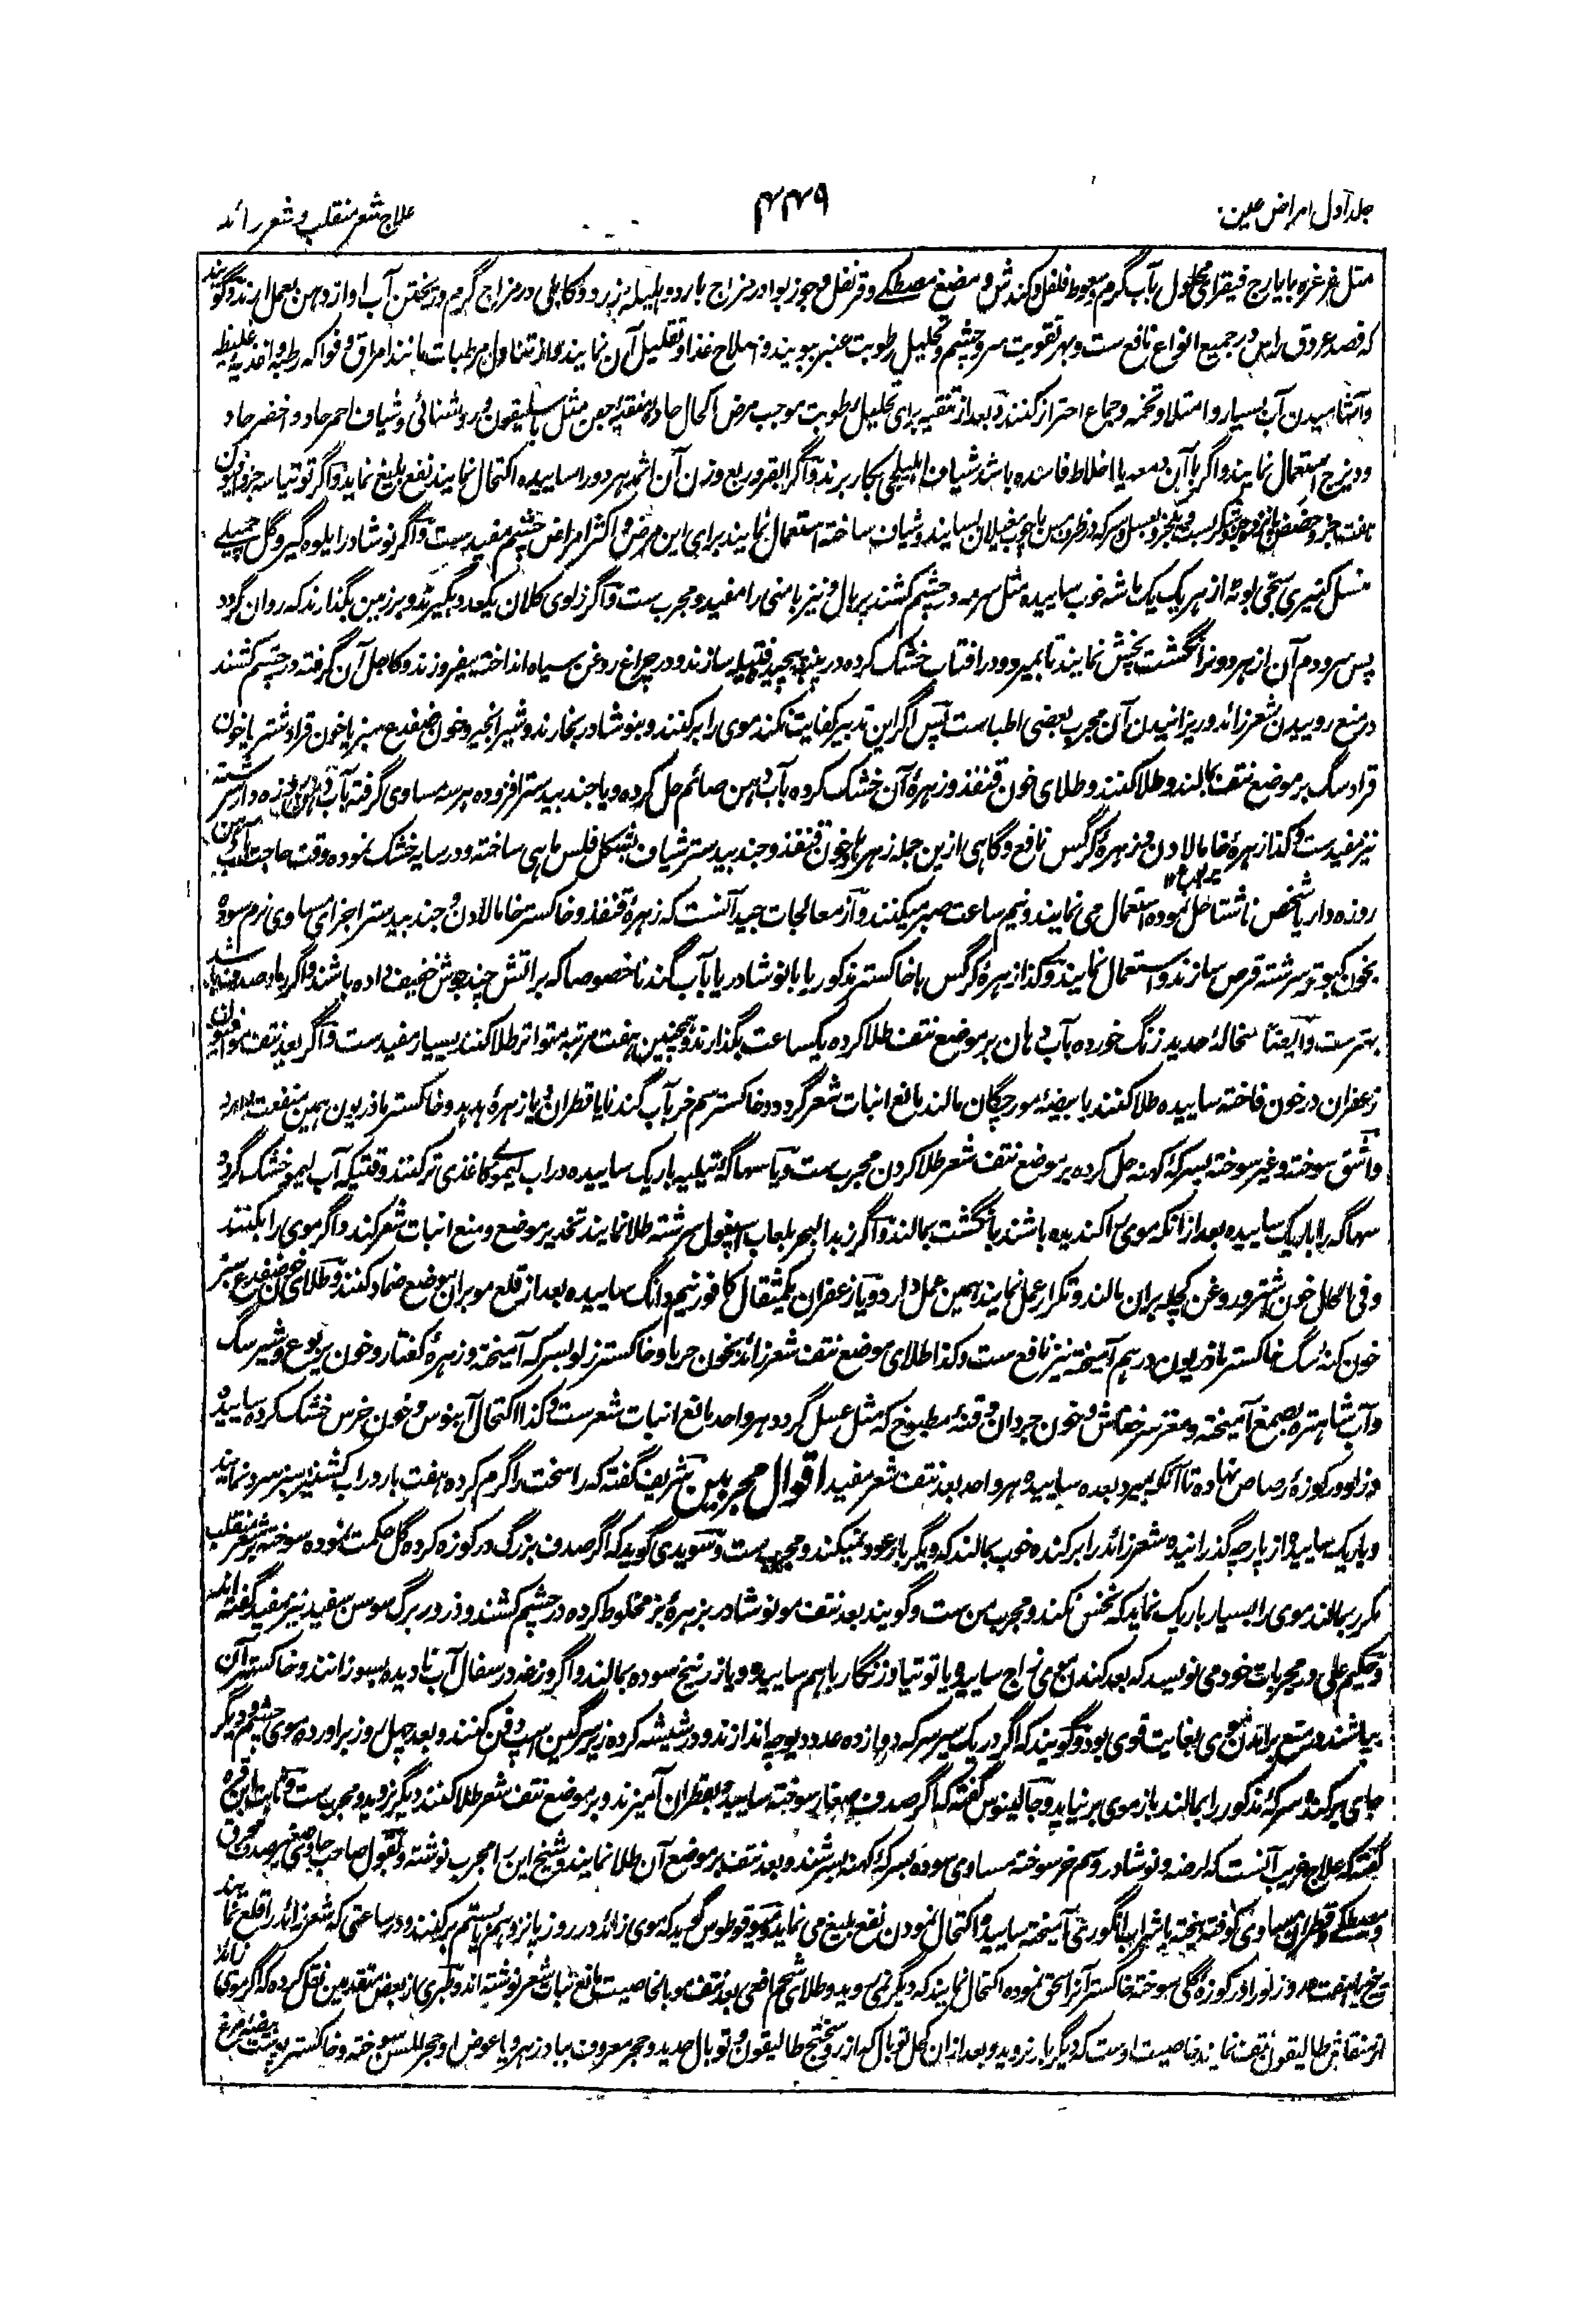 جلد اول امراض عین
۴۴۹
علاج شعر منقلب و شعر زائد
مثل غرغره بایارج فیقرا محلول بآب گرم و سعوط فلفل و کندش و مضغ مصطکے و قرنفل و جوز بوا در مزاج بارد و هلیله زرد و کابلی در مزاج گرم و ریختن آب او از دهن بعمل آرند و گویند
که فصد عروق راس در جمیع انواع نافع ست و بهر تقویت سر و چشم و تحلیل رطوبت عنبر ببویند و اصلاح غذا و تقلیل آن نمایند و از تناول مرطبات مانند امراق و فواکه رطبه و اغذیهٔ غلیظه
و آشامیدن آب بسیار و امتلا و تخمه و جماع احتراز کنند و بعد از تنقیه برای تحلیل رطوبت موجب مرض اکحال حاده منقیهٔ جفن مثل باسلیقون و روشنائی و شیاف احمر حاد و اخضر حاد
و دیزج استعمال نمایند و اگر با آن دمعه یا اخلاط فاسده باشد شیاف اهلیلجی بکار برند و اگر ابقر و ربع وزن آن اثمد هر دو را ساییده اکتحال نمایند نفع بلیغ نماید و اگر توتیا سه جزو افیون
هفت جزو و سرکه در ظرف مس با چوب مغیلان بسایند و شیاف ساخته استعمال نمایند برای این مرض و اکثر امراض چشم مفید ست و اگر نوشادر ایلوه گیرو گل چنبیلے
سجی از هر یک یک ماشه خوب ساییده مثل سرمه در چشم کشند پربال و نیز بامنی را مفید و مجرب ست و اگر زلوی کلان یکعدد بگیرند و بر زمین بگذارند که روان گردد
پس سر و دم آن از هر دو نر انگشت بخش نمایند تا بمیرد و در آفتاب خشک کرده در پنبه پیچیده فتیله سازند و در چراغ روغن سیاه انداخته بیفروزند و کاجل آن گرفته در چشم کشند
در منع روییدن شعر زائد و ریزانیدن آن مجرب بعضی اطبا ست پس اگر این تدبیر کفایت نکند موی را برکنند و بنوشادر بخارند و شیر انجیر و خون ضفدع سبز یا خون قراد شتر یا خون
قراد سگ بر موضع نتف بمالند و طلا کنند و طلای خون قنفذ و زهرهٔ آن خشک کرده بآب دهن صائم حل کرده و یا جندبیدستر افزوده هر سه مساوی گرفته بآب دهن روزه دار سرشته
نیز مفید ست و کذا زهرهٔ خامالادن و زهرهٔ کرگس نافع و گاهی ازین جمله زهره‌ها و خون قنفذ و جندبیدستر شیاف بشکل فلس ماهی ساخته و در سایه خشک نموده وقت حاجت بآب دهن
روزه دار یا شخص ناشتا حل نموده استعمال می نمایند و نیم ساعت صبر میکنند و از معالجات جید آنست که زهرهٔ قنفذ و خاکستر خامالادن و جندبیدستر اجزای مساوی نرم سوده
بخون کبوتر سرشته قرص سازند و استعمال نمایند و کذا زهرهٔ کرگس با خاکستر مذکور یا با نوشادر یا بآب گندنا خصوصا که بر آتش چند جوش خفیف داده باشند و اگر با رماد صدف باشد
بهتر ست و ایضا سخالهٔ حدید زنگ خورده بآب دهان بر موضع نتف طلا کرده یکساعت بگذارند و همچنین هفت مرتبه متواتر طلا کنند بسیار مفید ست و اگر بعد نتف مو افیون
زعفران در خون فاخته ساییده طلا کنند یا بیضهٔ مورچگان مالند مانع انبات شعر گردد و خاکستر سم خر بآب گندنا یا قطران و یا زهرهٔ هدهد و خاکستر مازریون همین منفعت دارد
و اشق سوخته و غیر سوخته بسرکهٔ کهنه حل کرده بر موضع نتف شعر طلا کردن مجرب ست و یا سهاگه تیلیه باریک ساییده در آب لیموے کاغذی تر کنند وقتیکه آب لیمو خشک گردد
سهاگه را باریک ساییده بعد از آنکه موی را کندیده باشند بانگشت بمالند و اگر زبد البحر بلعاب اسپغول سرشته طلا نمایند تخدیر موضع و منع انبات شعر کند و اگر موی را بکنند
و فی الحال خون شتر و روغن کچله بران مالند و تکرار عمل نمایند همین عمل دارد و یا زعفران یکمثقال کافور نیم دانگ ساییده بعد از قلع مو بران موضع ضماد کنند و طلای خون ضفدع سبز
خون کنهٔ سگ خاکستر مازریون درهم آمیخته نیز نافع ست و کذا طلای موضع نتف شعر زائد بخون حربا و خاکستر زلو بسرکه آمیخته و زهرهٔ کفتار و خون یربوع و شیر سگ
و آب شاهتره بصمغ آمیخته و مغز سر خفاش و خون جردان و قنهٔ مطبوخ که مثل عسل گردد هر واحد مانع انبات شعر ست و کذا اکتحال آبنوس و خون خرس خشک کرده ساییده
و زلو در کوزهٔ رصاص نهاده تا آنکه بمیرد بعده ساییده هر واحد بعد نتف شعر مفید اقوال مجربین شریف گفته که راسخت را گرم کرده هفت بار در آب کشنیز سبز سرد نمایند
و باریک ساییده از پارچه گذرانیده شعر زائد را برکنده خوب بمالند که دیگر باز عود نمیکند و مجرب ست و سویدی گوید که اگر صدف بزرگ در کوزه کرده گل حکمت نموده سوخته بر شعر منقلب
مکرر بمالند موی را بسیار باریک نماید که نخس نکند و مجرب من ست و گویند بعد نتف مو نوشادر بزهرهٔ بز مخلوط کرده در چشم کشند و ذرور برگ سوسن سفید نیز مفید گفته اند
و حکیم علی در مجربات خود می نویسد که بعد کندن موی زاج ساییده یا توتیا و زنگار باهم ساییده و یا زرنیخ سوده بمالند و اگر در سفال آب نادیده بسوزانند و خاکستر آن
بپاشند در منع برآمدن موی بغایت قوی بود و گویند که اگر در یک سیر سرکه دوازده عدد دیوچه اندازند و در شیشه کرده زیر سرگین اسپ دفن کنند و بعد چهل روز برآورده موی چشم و دیگر
جای برکنند و سرکهٔ مذکور را بمالند باز موی برنیاید و جالینوس گفته که اگر صدف صغار سوخته ساییده بقطران آمیزند و بر موضع نتف شعر طلا کنند دیگر نروید و مجرب ست و ثابت ابن قره
گفته که علاج غریب آنست که ارضه و نوشادر و سم خر سوخته مساوی سوده بسرکهٔ کهنه بسرشند و بعد نتف بر موضع آن طلا نمایند و شیخ این را مجرب نوشته و بقول صاحب حاوی صغیر صدف محرق
و مصطکے و قطران مساوی کوفته بیخته با شراب انگوری آمیخته ساییده اکتحال نمودن نفع بلیغ می نماید گوید که موی زائد در روز پانزدهم یا بیستم برکنند و در ساعتی که شعر زائد را قلع نمایند
زلو را در کوزهٔ گلی سوخته خاکستر آنرا سحق نموده اکتحال نمایند که دیگر نمی روید و طلای شحم افعی بعد نتف مو بالخاصیت مانع نبات شعر نوشته اند و طبری از بعض متقدمین نقل کرده که اگر موی زائد
از منقاش طالیقون نتف نمایند خاصیت اوست که دیگر بار نروید و بعد از آن کحل توبال که از روسختج طالیقون و توبال حدید و حجر معروف ببادزهر و یا عوض او حجر المسن سوخته و خاکستر پوست بیضهٔ مرغ